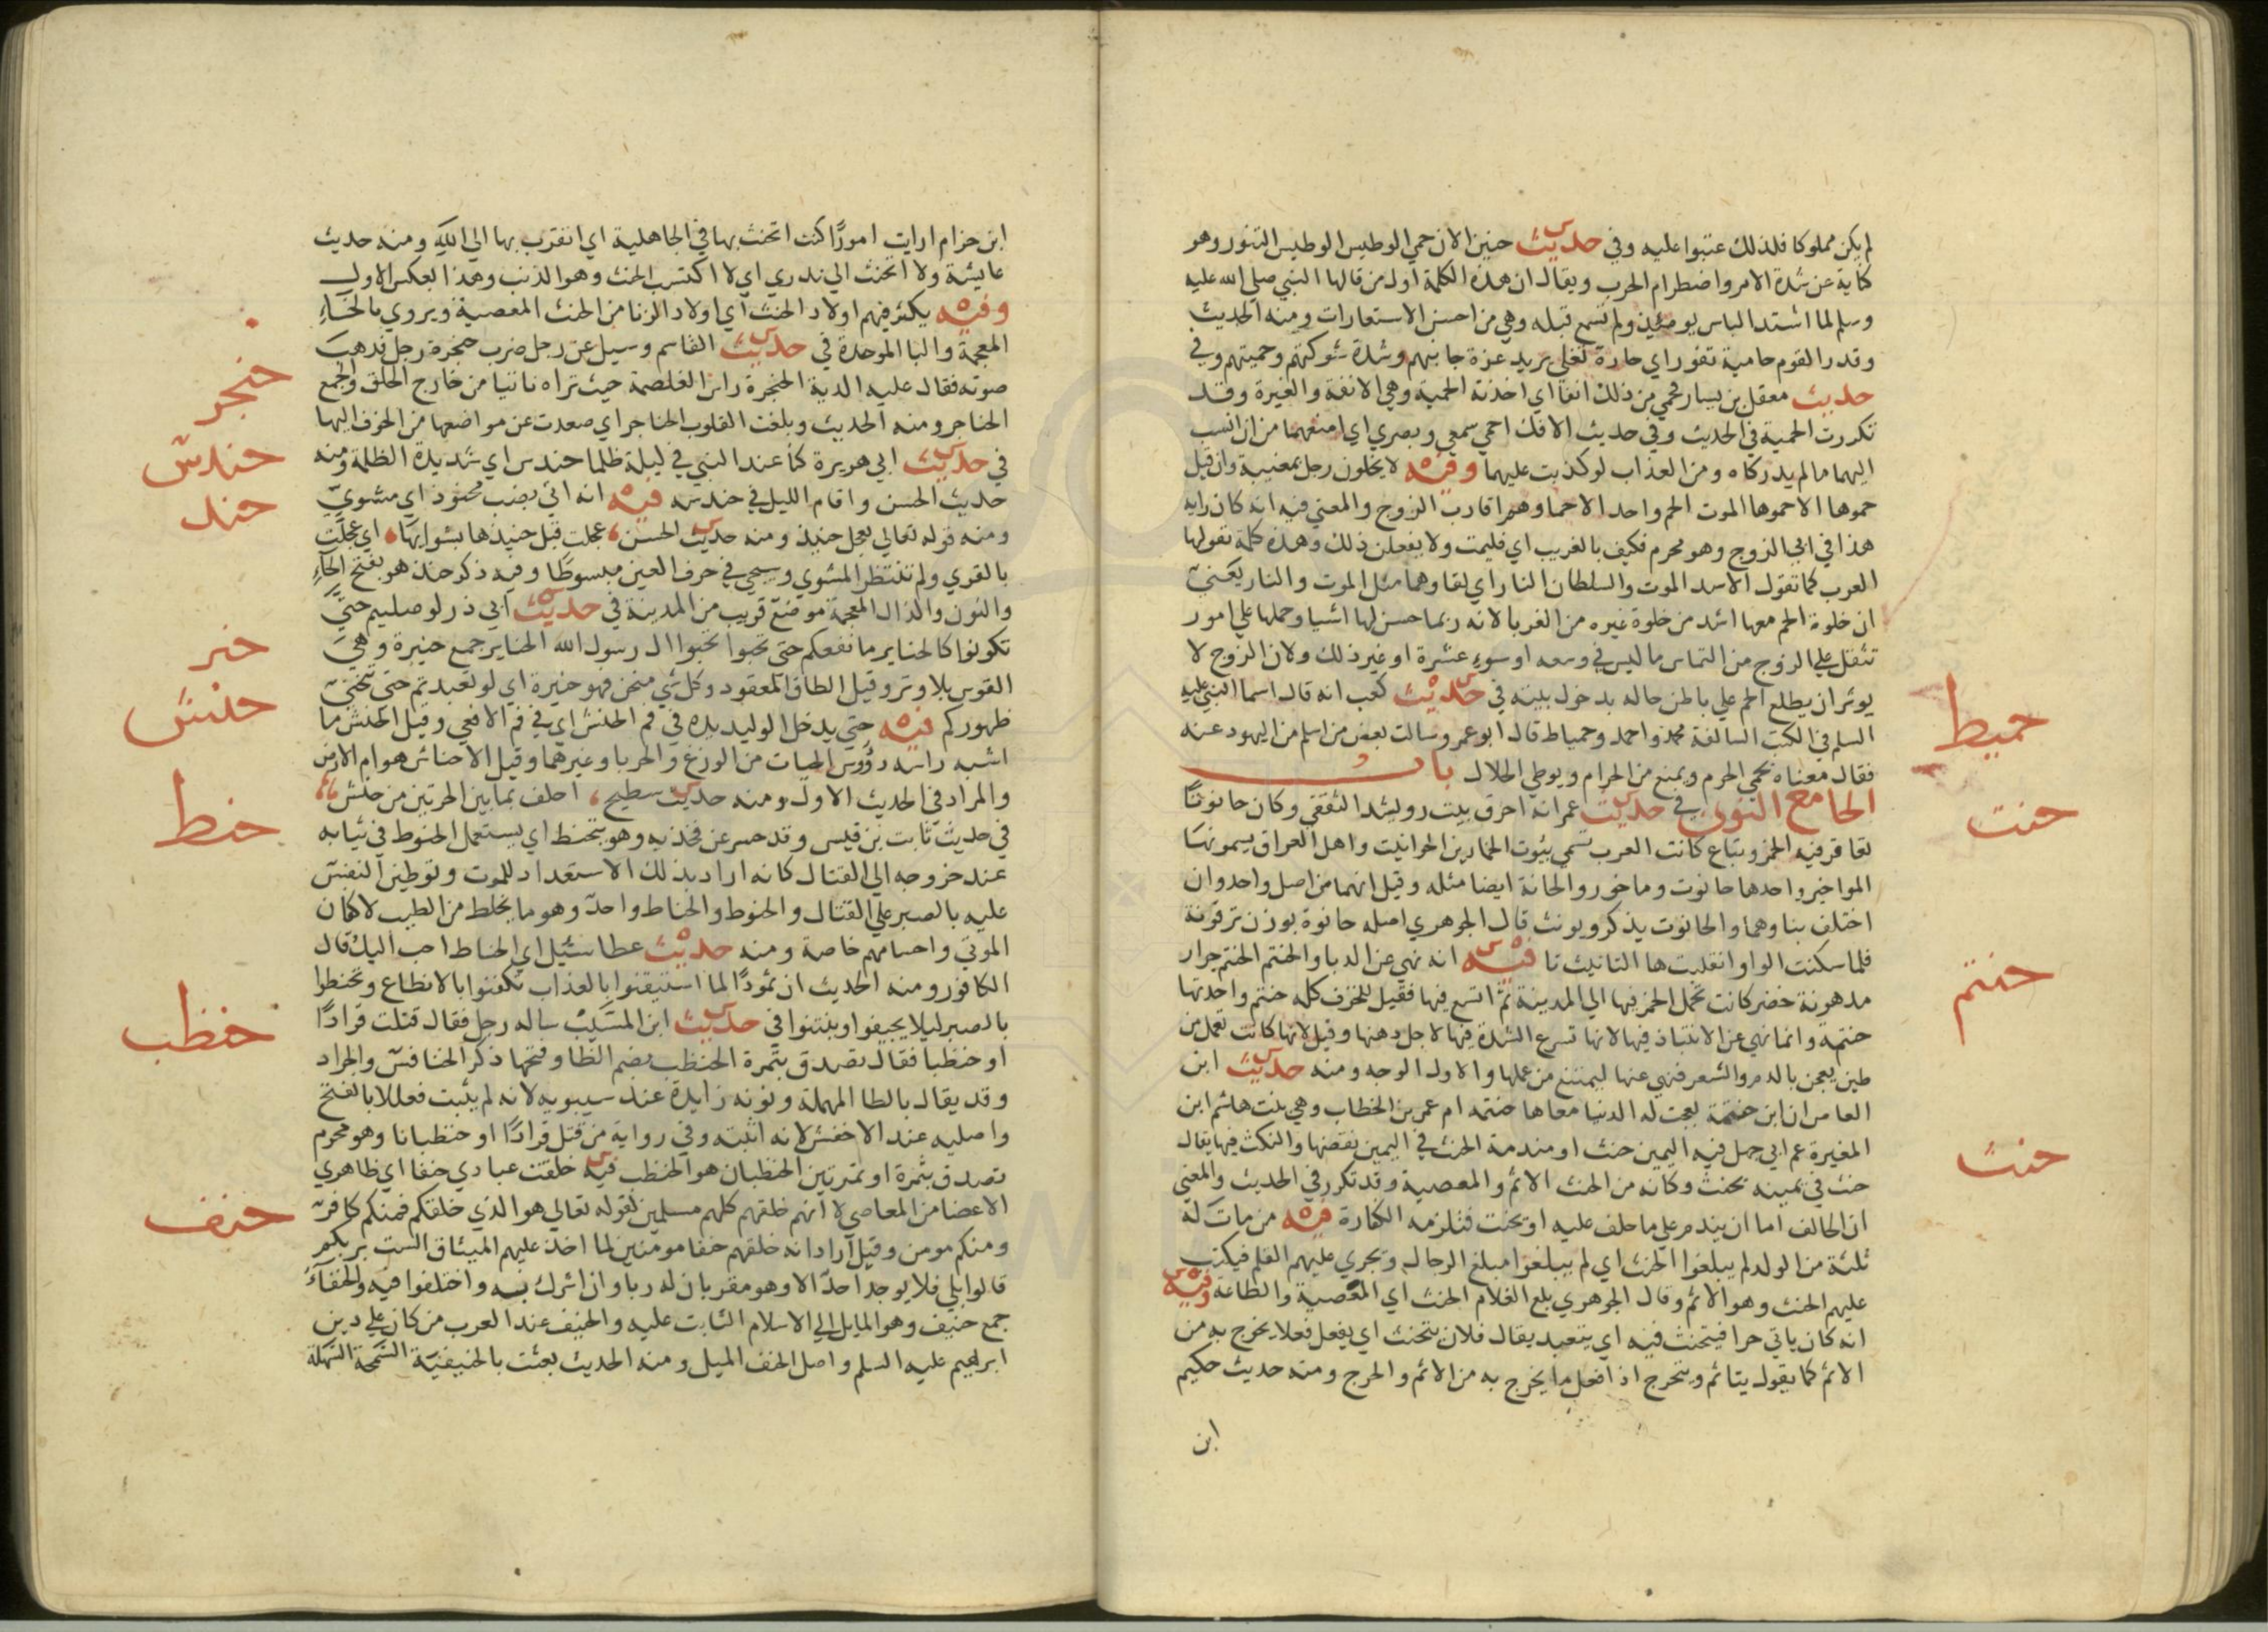 لم يكن مملوكا فلذلك عتبوا عليه وفي حديث حنين الان حمي الوطيس الوطيس التنور وهو
كناية عن شدة الامر واضطرام الحرب ويقال ان هذه الكلمة اول من قالها النبي صلي الله عليه
وسلم لما اشتد الباس يومئذ ولم تسمع قبله وهي من احسن الاستعارات ومنه الحديث
وقدر القوم حامية تفور اي حارة تغلي يريد عزة جانبهم وشدة شوكتهم وحميتهم وفي
حديث معقل بن يسار فحمي من ذلك انفا اي اخذته الحمية وهي الانفة والغيرة وقد
تكررت الحمية في الحديث وفي حديث الافك احمي سمعي وبصري اي امنعهما من ان انسب
اليهما ما لم يدركاه ومن العذاب لو كذبت عليهما وفيه لا يخلون رجل بمغيبة وان قيل
حموها الا حموها الموت الحم واحد الاحما وهم اقارب الزوج والمعني فيه انه كان رايه
هذا في ابي الزوج وهو محرم فكيف بالغريب اي فليمت ولا يفعلن ذلك وهذه كلمة تقولها
العرب كما تقول الاسد الموت والسلطان النار اي لقاوهما مثل الموت والنار يعني
ان خلوة الحم معها اشد من خلوة غيره من الغربا لانه ربما حسن لها اشيا وحملها علي امور
تثقل علي الزوج من التماس ما ليس في وسعه او سوء عشرة او غير ذلك ولان الزوج لا
يوثر ان يطلع الحم علي باطن حاله بدخول بيته في حديث كعب انه قال اسما النبي عليه
حميط
السلم في الكتب السالفة محمد واحمد وحمياط قال ابو عمرو سالت بعض من اسلم من اليهود عنه
فقال معناه يحمي الحرم ويمنع من الحرام ويوطي الحلال باب
الحا مع النون في حديث عمر انه احرق بيت رويشد الثقفي وكان حانوتا
حنت
تعاقر فيه الخمر وتباع كانت العرب تسمي بيوت الخمارين الحوانيت واهل العراق يسمونها
المواخير واحدها حانوت وماخور والحانة ايضا مثله وقيل انهما من اصل واحد وان
اختلف بناوهما والحانوت يذكر ويونث قال الجوهري اصله حانوة بوزن ترقوة
فلما سكنت الواو انقلبت ها التانيث تا فيه انه نهي عن الدبا والحنتم الحنتم جرار
حنتم
مدهونة خضر كانت تحمل الخمر فيها الي المدينة ثم اتسع فيها فقيل للخزف كله حنتم واحدتها
حنتمة وانما نهي عن الانتباذ فيها لانها تسرع الشدة فيها لاجل دهنها وقيل لانها كانت تعمل من
طين يعجن بالدم والشعر فنهي عنها ليمتنع من عملها والاول الوجه ومنه حديث ابن
العاص ان ابن حنتمة بعجت له الدنيا معاها حنتمه ام عمر بن الخطاب وهي بنت هاشم ابن
المغيرة عم ابي جهل فيه اليمين حنث او مندمة الحنث في اليمين نقضها والنكث فيها يقال
حنث
حنث في يمينه يحنث وكانه من الحنث الاثم والمعصية وقد تكرر في الحديث والمعني
ان الحالف اما ان يندم علي ما حلف عليه او يحنث فتلزمه الكفارة فيه من مات له
ثلثة من الولد لم يبلغوا الحنث اي لم يبلغوا مبلغ الرجال ويجري عليهم القلم فيكتب
عليهم الحنث وهو الاثم وقال الجوهري بلغ الغلام الحنث اي المعصية والطاعة وفيه
انه كان ياتي حرا فيتحنث فيه اي يتعبد يقال فلان يتحنث اي يفعل فعلا يخرج به من
الاثم كما يقول يتاثم ويتحرج اذا فعل ما يخرج به من الاثم والحرج ومنه حديث حكيم
ابن
ابن حزام ارايت امورا كنت اتحنث بها في الجاهلية اي اتقرب بها الي الله ومنه حديث
عايشة ولا اتحنث الي نذري اي لا اكتسب الحنث وهو الذنب وهذا بعكس الاول
وفيه يكثر فيهم اولاد الحنث اي اولاد الزنا من الحنث المعصية ويروي بالخاء
المعجمة والبا الموحدة في حديث القاسم وسيل عن رجل ضرب حنجرة رجل فذهب
حنجر
صوته فقال عليه الدية الحنجرة راس الغلصمة حيث تراه ناتيا من خارج الحلق والجمع
الحناجر ومنه الحديث وبلغت القلوب الحناجر اي صعدت عن مواضعها من الخوف اليها
في حديث ابي هريرة كنا عند النبي في ليلة ظلما حندس اي شديدة الظلمة ومنه
حندس
حديث الحسن واقام الليل في حندسه فيه انه اتي بضب محنوذ اي مشوي
حنذ
ومنه قوله تعالي بعجل حنيذ ومنه حديث الحسن عجلت قبل حنيذها بشوايها اي عجلت
بالقري ولم تنتظر المشوي وسيجي في حرف العين مبسوطا وفيه ذكر حنذ هو بفتح الحاء
والنون والذال المعجمة موضع قريب من المدينة في حديث ابي ذر لو صليم حتي
تكونوا كالحناير ما نفعكم حتي تحبوا ال رسول الله الحناير جمع حنيرة وهي
حنر
القوس بلا وتر وقيل الطاق المعقود وكل شي منحن فهو حنيرة اي لو تعبدتم حتي تنحني
ظهوركم فيه حتي يدخل الوليد يده في فم الحنش اي في فم الافعي وقيل الحنش ما
حنش
اشبه راسه رؤوس الحيات من الوزغ والحربا وغيرهما وقيل الاحناش هوام الارض
والمراد في الحديث الاول ومنه حديث سطيح احلف بما بين الحرتين من حنش
في حديث ثابت بن قيس وقد حسر عن فخذيه وهو يتحنط اي يستعمل الحنوط في ثيابه
حنط
عند خروجه الي القتال كانه اراد بذلك الاستعداد للموت وتوطين النفس
عليه بالصبر علي القتال والحنوط والحناط واحد وهو ما يخلط من الطيب لاكفان
الموتي واجسامهم خاصة ومنه حديث عطا سئيل اي الحناط احب اليك قال
الكافور ومنه الحديث ان ثمودا لما استيقنوا بالعذاب تكفنوا بالانطاع وتحنطوا
بالصبر ليلا يجيفوا وينتنوا في حديث ابن المسيب ساله رجل فقال قتلت قرادا
حنظب
او حنظبا فقال تصدق بتمرة الحنظب بضم الظا وفتحها ذكر الخنافس والجراد
وقد يقال بالطا المهملة ونونه زايدة عند سيبويه لانه لم يثبت فعللا بالفتح
واصليه عند الاخفش لانه اثبته وفي رواية من قتل قرادا او حنظبانا وهو محرم
تصدق بتمرة او تمرتين الحنظبان هو الحنظب فيه خلقت عبادي حنفا اي ظاهري
الاعضا من المعاصي لا انهم خلقهم كلهم مسلمين لقوله تعالي هو الذي خلقكم فمنكم كافر
حنف
ومنكم مومن وقيل اراد انه خلقهم حنفا مومنين لما اخذ عليهم الميثاق الست بربكم
قالوا بلي فلا يوجد احد الا وهو مقر بان له ربا وان اشرك به واختلفوا فيه والحنفآء
جمع حنيف وهو المايل الي الاسلام الثابت عليه والحنيف عند العرب من كان علي دين
ابرهيم عليه السلم واصل الحنف الميل ومنه الحديث بعثت بالحنيفية السمحة السهلة